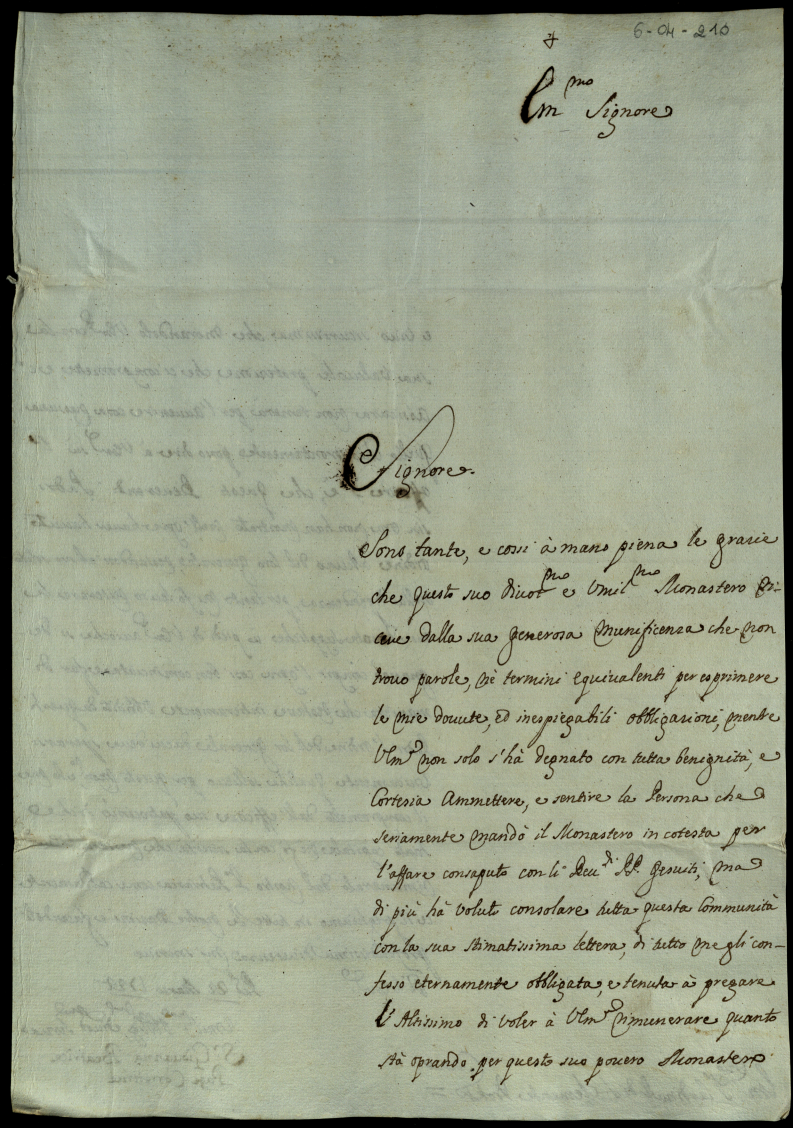 6-04-210
Em.mo Signore
Signore
Sono tante, e cosi à mano piena le grazie
che questo suo divot.mo e Umil.mo Monastero ri-
ceve dalla sua generosa Munificenza che non
trovo parole, nè termini equivalenti per esprimere
le mie dovute, ed inespiegabili obbligazioni, mentre
non solo s'hà degnato con tutta benignità, e
Cortesia Ammettere, e sentire la Persona che
seriamente mandò il Monastero in cotesta per
l'affare consaputo con li Rev.di PP. Gesuiti, ma
di più hà voluto consolare tutta questa Communità
con la sua stimatissima lettera, di tutto me gli con-
fesso eternamente obbligata, e tenuta à pregare
l'Altissimo di voler à rimunerare quanto
stà oprando per questo suo povero Monastero